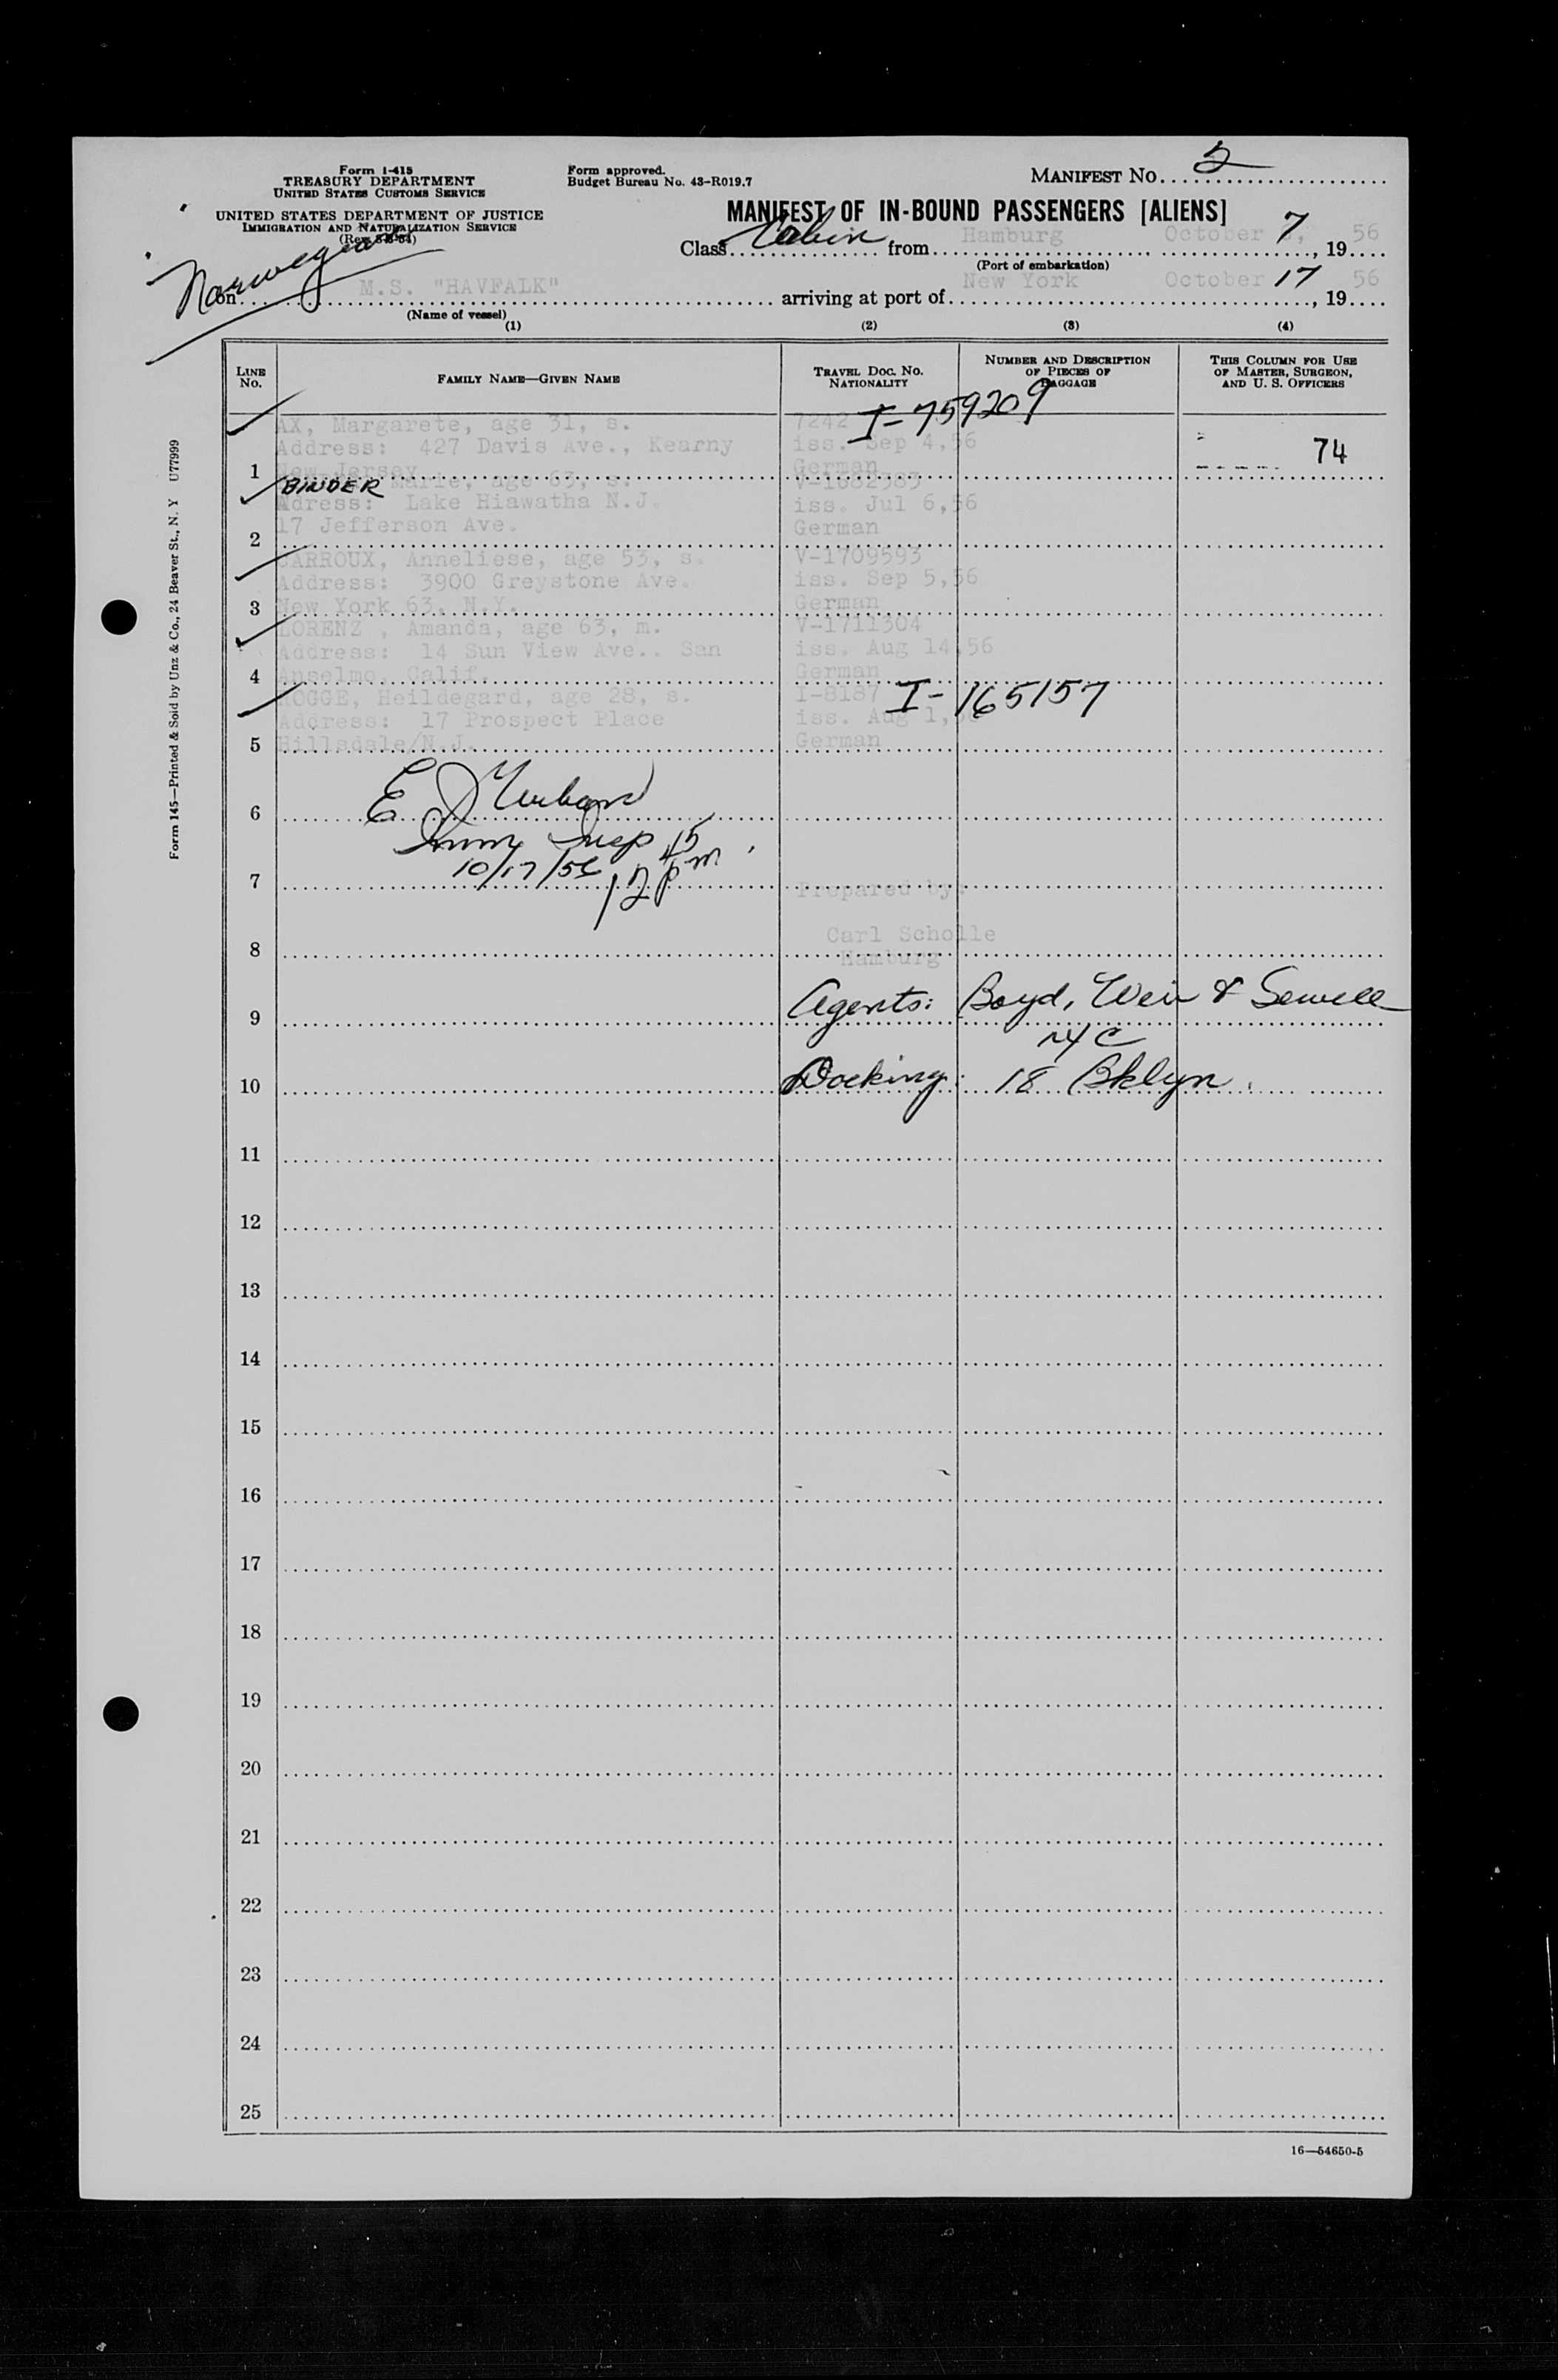 Form I-415
TREASURY DEPARTMENT
UNITED STATES CUSTOMS SERVICE
UNITED STATES DEPARTMENT OF JUSTICE
IMMIGRATION AND NATURALIZATION SERVICE
Form approved.
Budget Bureau No. 43-R019.7
MANIFEST NO. 2
MANIFEST OF IN-BOUND PASSENGERS [ALIENS]
Class Cabin from Hamburg October 7, 19 56
(Port of embarkation)
Norwegian
on M.S. "HAVFALK" arriving at port of New York October 17, 19 56
(Name of vessel)
(1) (2) (3) (4)
LINE NO. FAMILY NAME—GIVEN NAME TRAVEL DOC. NO. NATIONALITY NUMBER AND DESCRIPTION OF PIECES OF BAGGAGE THIS COLUMN FOR USE OF MASTER, SURGEON, AND U. S. OFFICERS
AX, Margarete, age 31, s. 7242 I-759209
Address: 427 Davis Ave., Kearny iss. Sep 4,56 74
1 New Jersey German
BINDER Marie, age 63, s. V-1682383
Adress: Lake Hiawatha N.J. iss. Jul 6,56
2 17 Jefferson Ave. German
CARROUX, Anneliese, age 53, s. V-1709593
Address: 3900 Greystone Ave. iss. Sep 5,56
3 New York 63, N.Y. German
LORENZ , Amanda, age 63, m. V-1711304
Address: 14 Sun View Ave.. San iss. Aug 14,56
4 Anselmo, Calif. German
ROGGE, Heildegard, age 28, s. I-8187 I-165157
Address: 17 Prospect Place iss. Aug 1,
5 Hillsdale/N.J. German
6 E J
Imm Insp
10/17/56 12 45 pm
7 Prepared by:
8 Carl Scholle
Hamburg
9 Agents: Boyd, Weir & Sewell
NYC
10 Docking: 18 Bklyn.
11
12
13
14
15
16
17
18
19
20
21
22
23
24
25
16—54650-5
Form 145—Printed & Sold by Unz & Co., 24 Beaver St., N. Y U77999